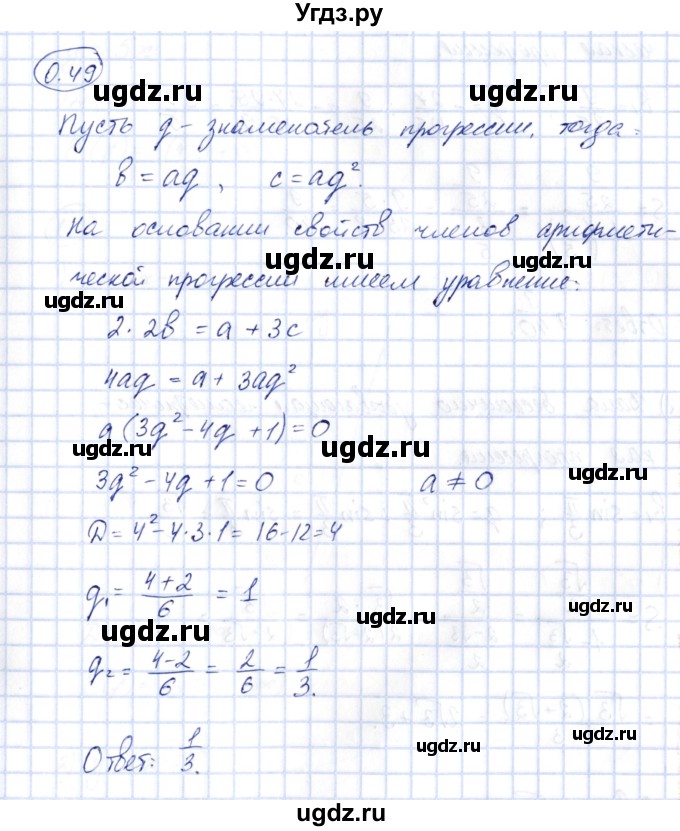 Угдз.ру
0.49
ugdz.ru ugdz.ru
Пусть q - знаменатель прогрессии, тогда:
b = aq, c = aq².
ugdz.ru ugdz.ru
На основании свойств членов арифмети-
ugdz.ru
ческой прогрессии имеем уравнение:
ugdz.ru ugdz.ru
2·2b = a + 3c
4aq = a + 3aq²
ugdz.ru
a(3q² - 4q + 1) = 0
ugdz.ru ugdz.ru
3q² - 4q + 1 = 0 a ≠ 0
ugdz.ru
D = 4² - 4·3·1 = 16 - 12 = 4
q₁ = (4+2)/6 = 1
ugdz.ru ugdz.ru
ugdz.ru
q₂ = (4-2)/6 = 2/6 = 1/3.
ugdz.ru
Ответ: 1/3.
ugdz.ru ugdz.ru
ugdz.ru